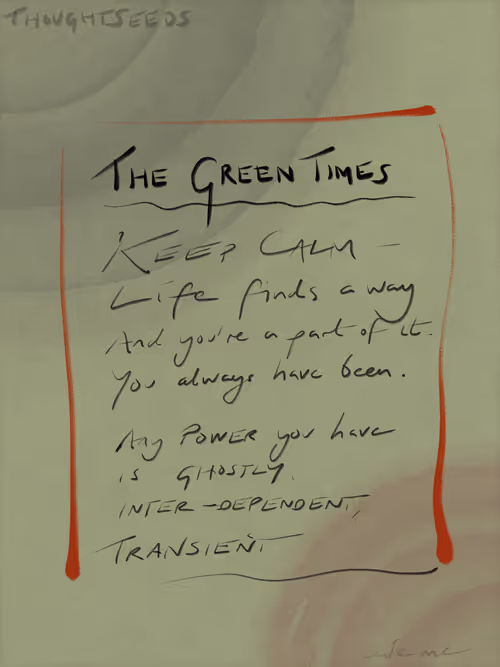 THOUGHTSEEDS
THE GREEN TIMES
KEEP CALM –
Life finds a way
And you're a part of it.
You always have been.
Any POWER you have
is GHOSTLY,
INTER-DEPENDENT,
TRANSIENT